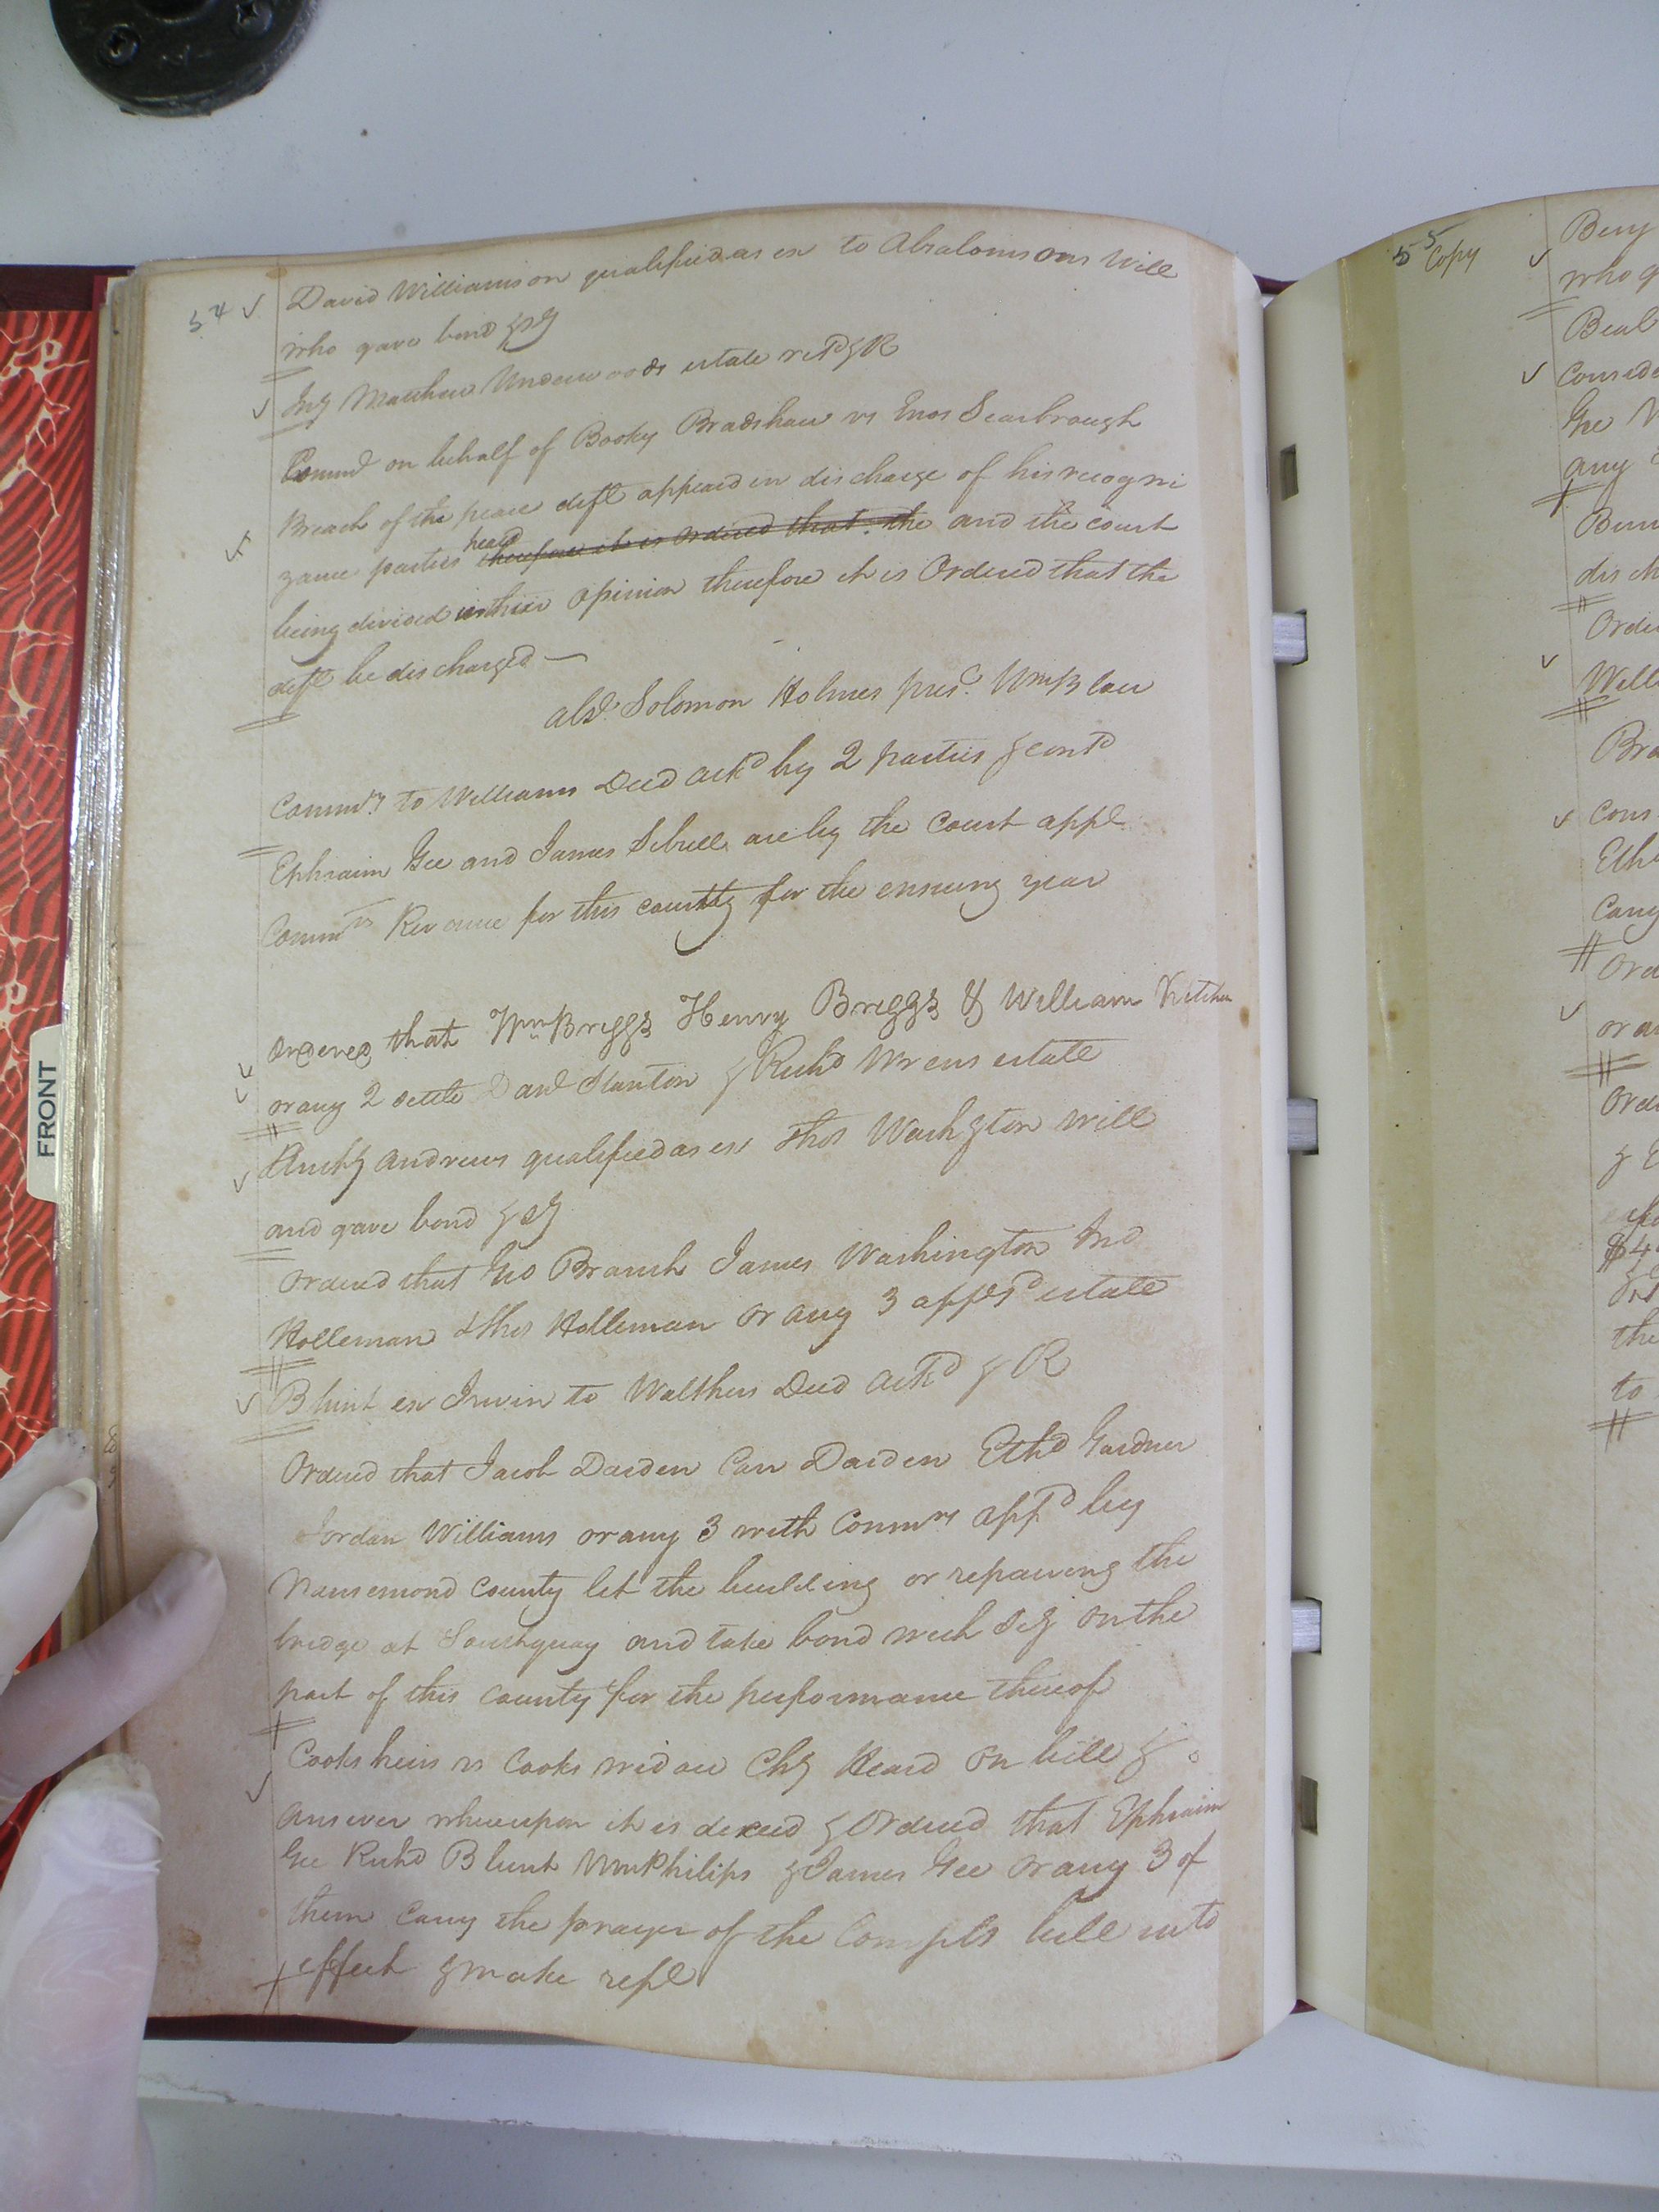 54 David Williamson qualified as ex to Absalom sons Will
who gave bond & Sy
Iny Matthew Underwoods estate retd & R
Commd on behalf of Booky Bradshaw vs Enos Scarbrough
Breach of the peace deft appeard in discharge of his recogni
zance parties heard therefore it is Ordered that the and the court
being divided in their opinion therefore it is Ordered that the
deft be discharged
abst Solomon Holmes prest. Wm B law
Commrs to Williams Deed ackd by 2 parties & contd
Ephraim Gee and James Sebrell are by the Court appd
Commrs Revenue for this county for the ensuing year
Ordered that Wm Briggs Henry Briggs & William Kitchen
or any 2 settle Danl Stanton & Richd Wrens estate
Andrews qualified as ex Thos Washgton will
and gave bond & Sy
Ordered that Geo Branch James Washington Jno
Holleman & Thos Holleman or any 3 estate
Blunt ex Irwin to Walthers Deed ackd & R
Ordered that Jacob Darden Carr Darden Ethd Gardner
Jordan Williams or any 3 with Commrs appd by
Nansemond County let the building or repairing the
bridge at Southquay and take bond with Scy on the
part of this county for the performance thereof
Cooks heirs vs Cooks widow Chy Heard on bill &
answer whereupon it is decreed & Ordered that Ephraim
Gee Richd Blunt Wm Philips & James Gee or any 3 of
them carry the prayer of the Complts bill into
effect & make rept
55 Copy
Beny
who q
Beal
Conside
Geo
any
Bun
disch
Orde
Will
Bra
Cons
Eth
Cary
Ord
or a
Orde
&
$4
the
to
FRONT